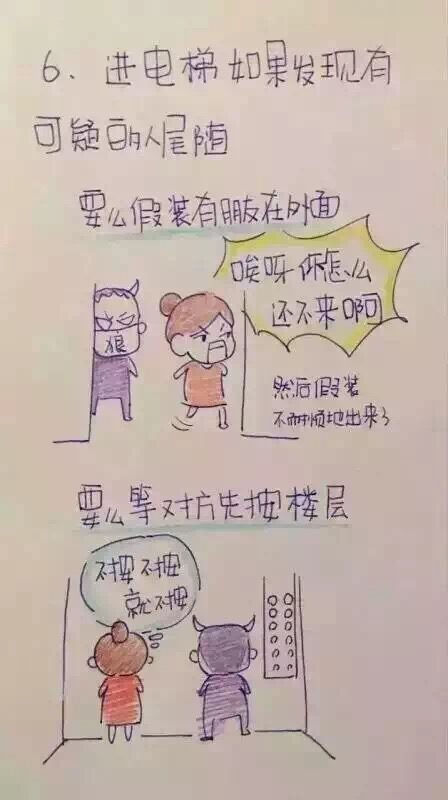 6、进电梯如果发现有
可疑的人尾随
要么假装有朋友在外面
唉呀你怎么
还不来啊
狼
然后假装
不耐烦地出来了
要么等对方先按楼层
不按不按
就不按